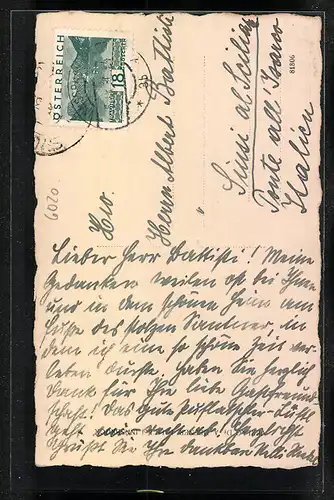 ÖSTERREICH
18
81806
6020
Herrn Albert Battisti
Siusi al Sciliar
Ponte all' Isarco
Italien
Lieber Herr Battisti! Meine
Gedanken weilen oft bei Ihnen
und in dem schönen Heim am
Fuße des stolzen Santner, in
dem ich eine so schöne Zeit ver-
leben durfte. Haben Sie herzlich
Dank für Ihre liebe Gastfreund
schaft! Das gute
geht
Grüßt Sie Ihre dankbare